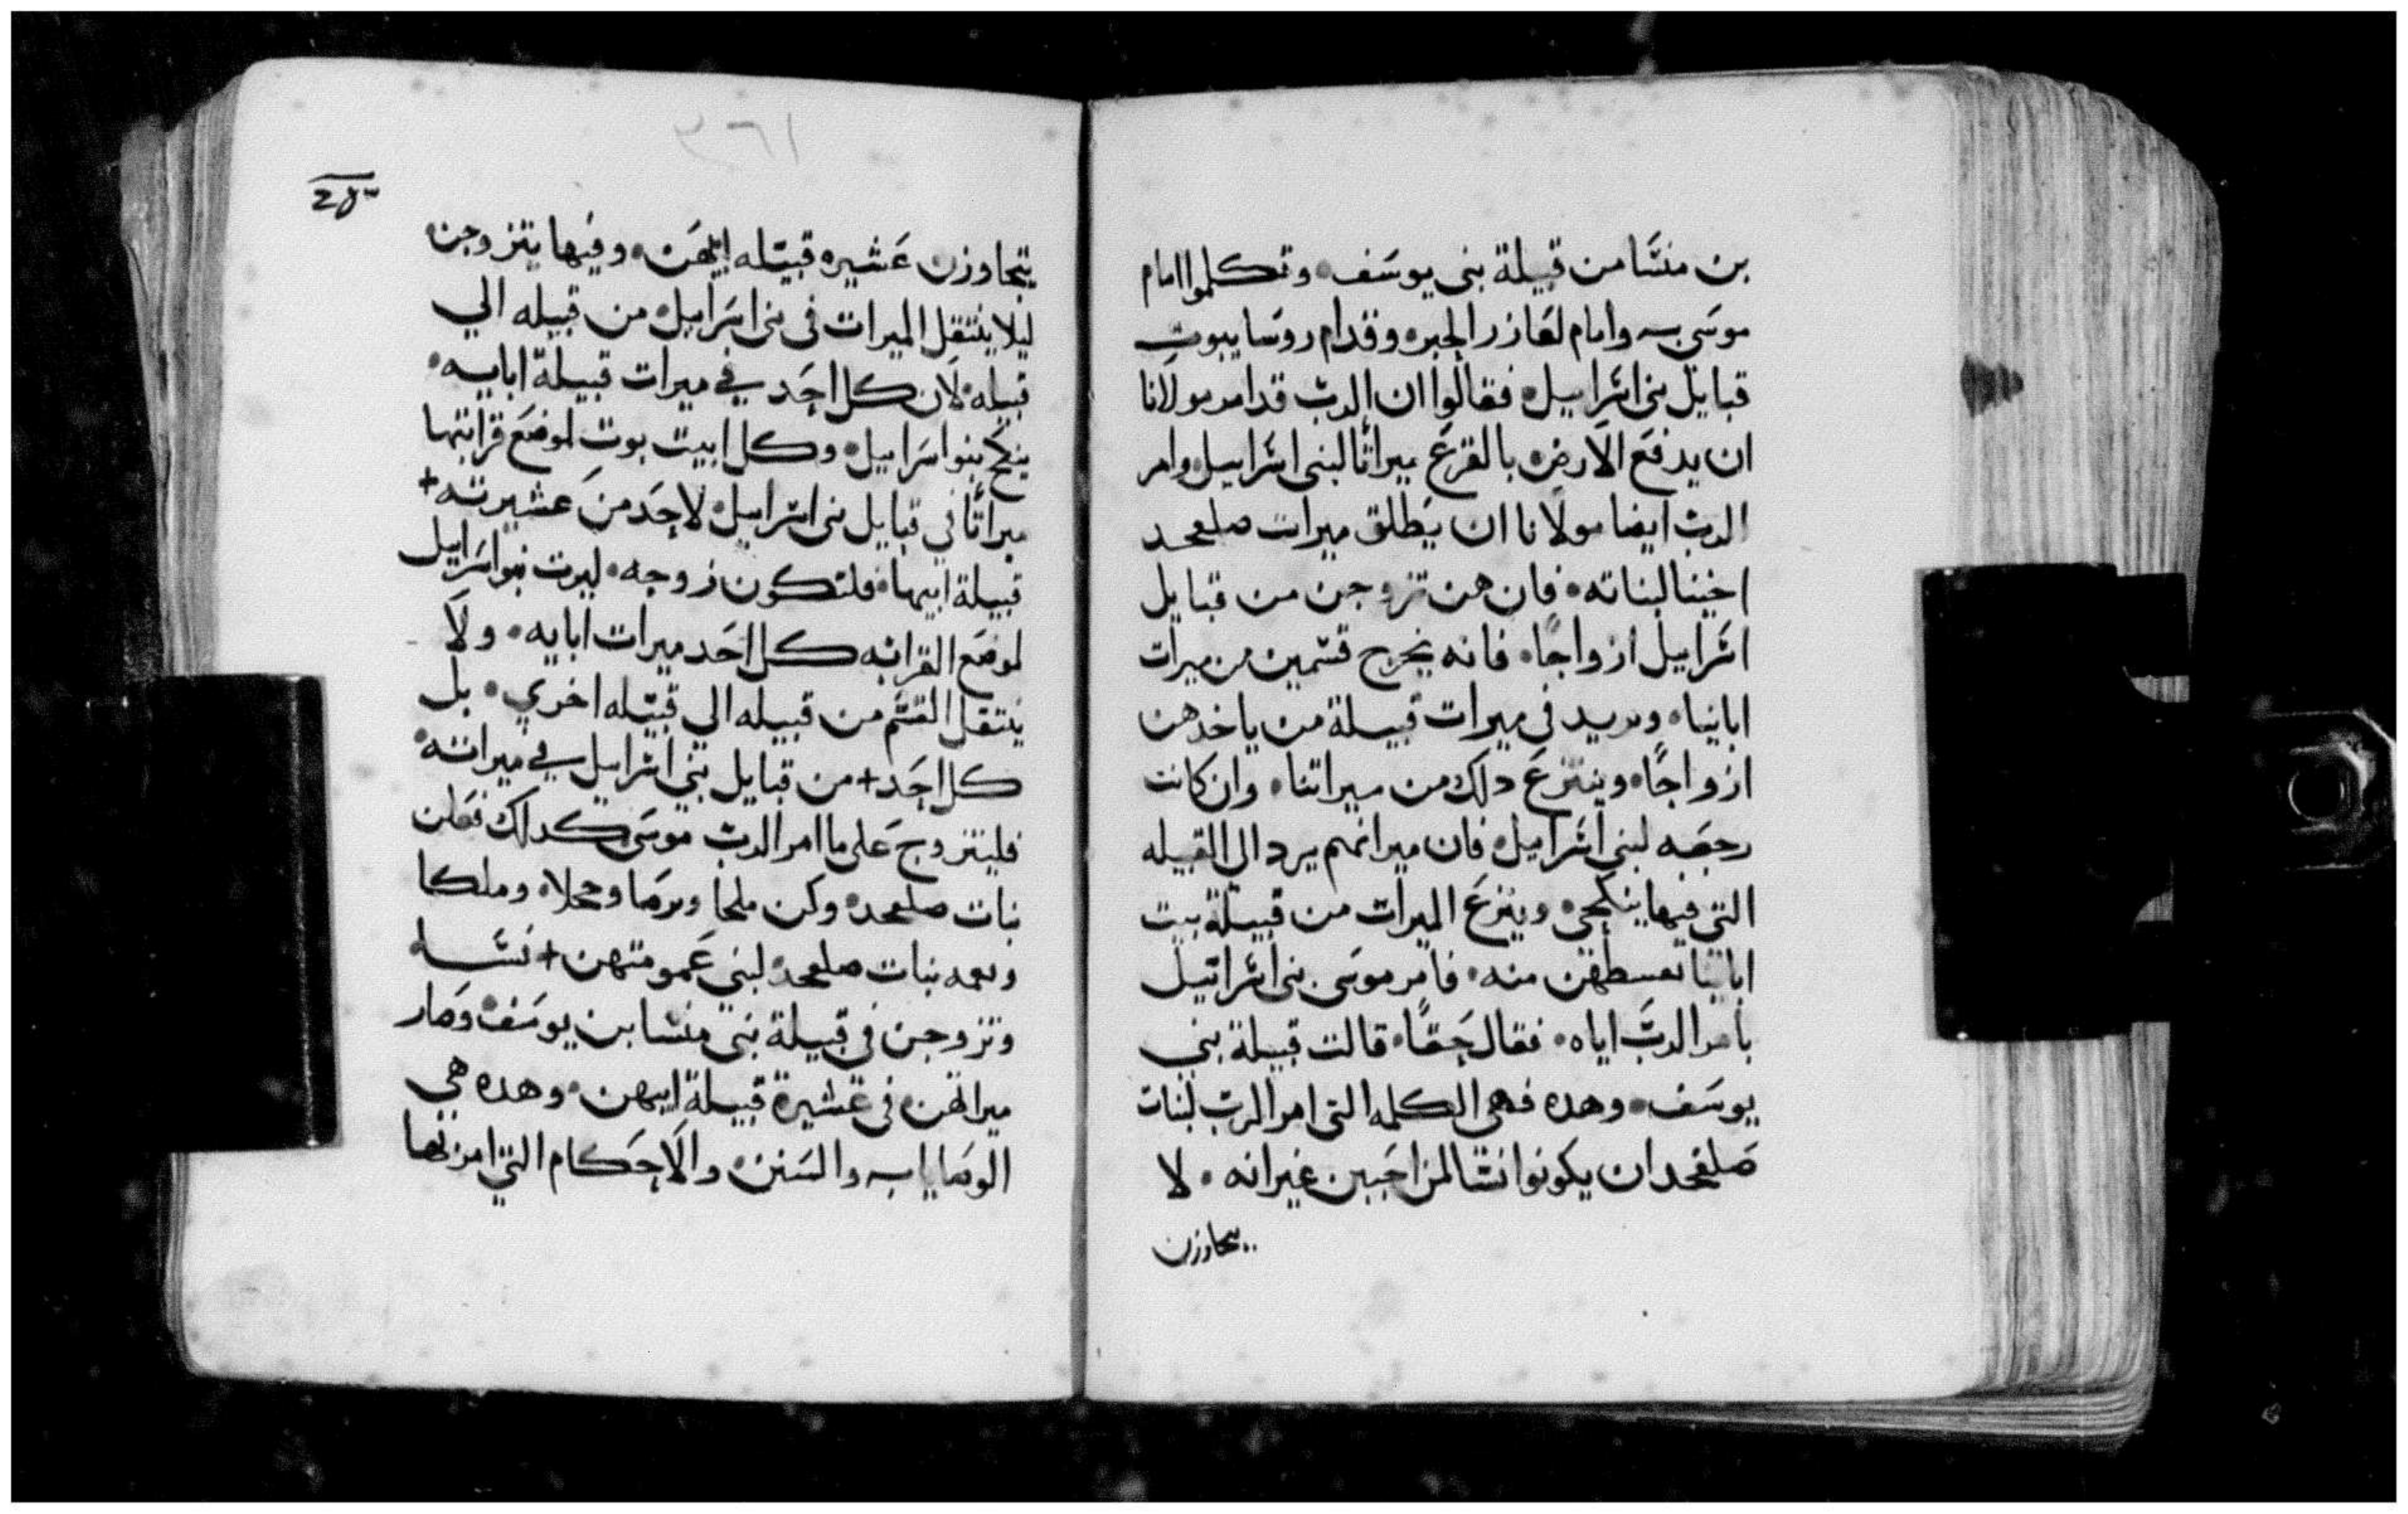 بن منشا من قبيلة بني يوسف • وتكلموا امام
موسي وامام لعازر الحبر • وقدام روسا بيوت
قبايل بني اسراييل • فقالوا ان الرب قد امر مولانا
ان يدفع الارض • بالقرع ميراثا لبني اسراييل • وامر
الرب ايضا مولانا ان يطلق ميرات صلفحد
اخينا لبناته • فان هن تزوجن من قبايل
اسراييل ازواجا • فانه يخرج قسمين من ميرات
اباينا • ويريد في ميرات قبيلة من ياخدهن
ازواجا • وينتزع دلك من ميراتنا • وان كانت
رجعه لبني اسراييل • فان ميراثهم يرد الي القبيله
التي فيها ينكحن • وينزع الميرات من قبيلة بيت
اباينا منه • فامر موسي بني اسراييل
بامر الرب اياه • فقال حقا • قالت قبيلة بني
يوسف • وهده فهي الكلمه التي امر الرب لبنات
صلفحد ان يكونوا نسا لمن احببن غير انه • لا
يتجاوزن
٣٦١
يتجاوزن عشيره قبيله ابيهن • وفيها يتزوجن
ليلا ينتقل الميرات في بني اسراييل • من قبيله الي
قبيله • لان كل احد في ميرات قبيلة ابايه •
ينكح بنوا اسراييل • وكل ابيت بوت لموضع قرابتها
ميراثا في قبايل بني اسراييل • لاحد من عشيرته +
قبيلة ابيها • فلتكون زوجه • ليرث بنوا اسراييل
لموضع القرابه كل احد ميرات ابايه • ولا
ينتقل القسم من قبيله الي قبيله اخري • بل
كل احد + من قبايل بني اسراييل في ميراته •
فليتزوج علي ما امر الرب موسي كدلك فعلن
بنات صلفحد • وكن ملحا وترصا ومحلا • وملكا
ونعمه بنات صلفحد • لبني عمومتهن + نسا •
وتزوجن في قبيلة بني منشا بن يوسف • وصار
ميراثهن • في عشيرة قبيلة ابيهن • وهده هي
الوصايا والسنن • والاحكام التي امر بها